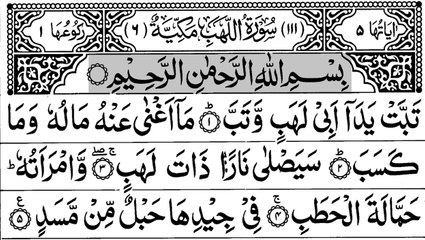 اٰیَاتُهَا ۵ (۱۱۱) سُوْرَةُ اللَّهَبِ مَكِّيَّةٌ (۶) رُكُوْعُهَا ۱
بِسْمِ اللهِ الرَّحْمٰنِ الرَّحِيْمِ
تَبَّتْ يَدَاۤ اَبِيْ لَهَبٍ وَّتَبَّ ؕ﴿۱﴾ مَاۤ اَغْنٰى عَنْهُ مَالُهٗ وَمَا
كَسَبَ ؕ﴿۲﴾ سَيَصْلٰى نَارًا ذَاتَ لَهَبٍ ۚۖ﴿۳﴾ وَّامْرَاَتُهٗ ؕ
حَمَّالَةَ الْحَطَبِ ۚ﴿۴﴾ فِيْ جِيْدِهَا حَبْلٌ مِّنْ مَّسَدٍ ﴿۵﴾ ع